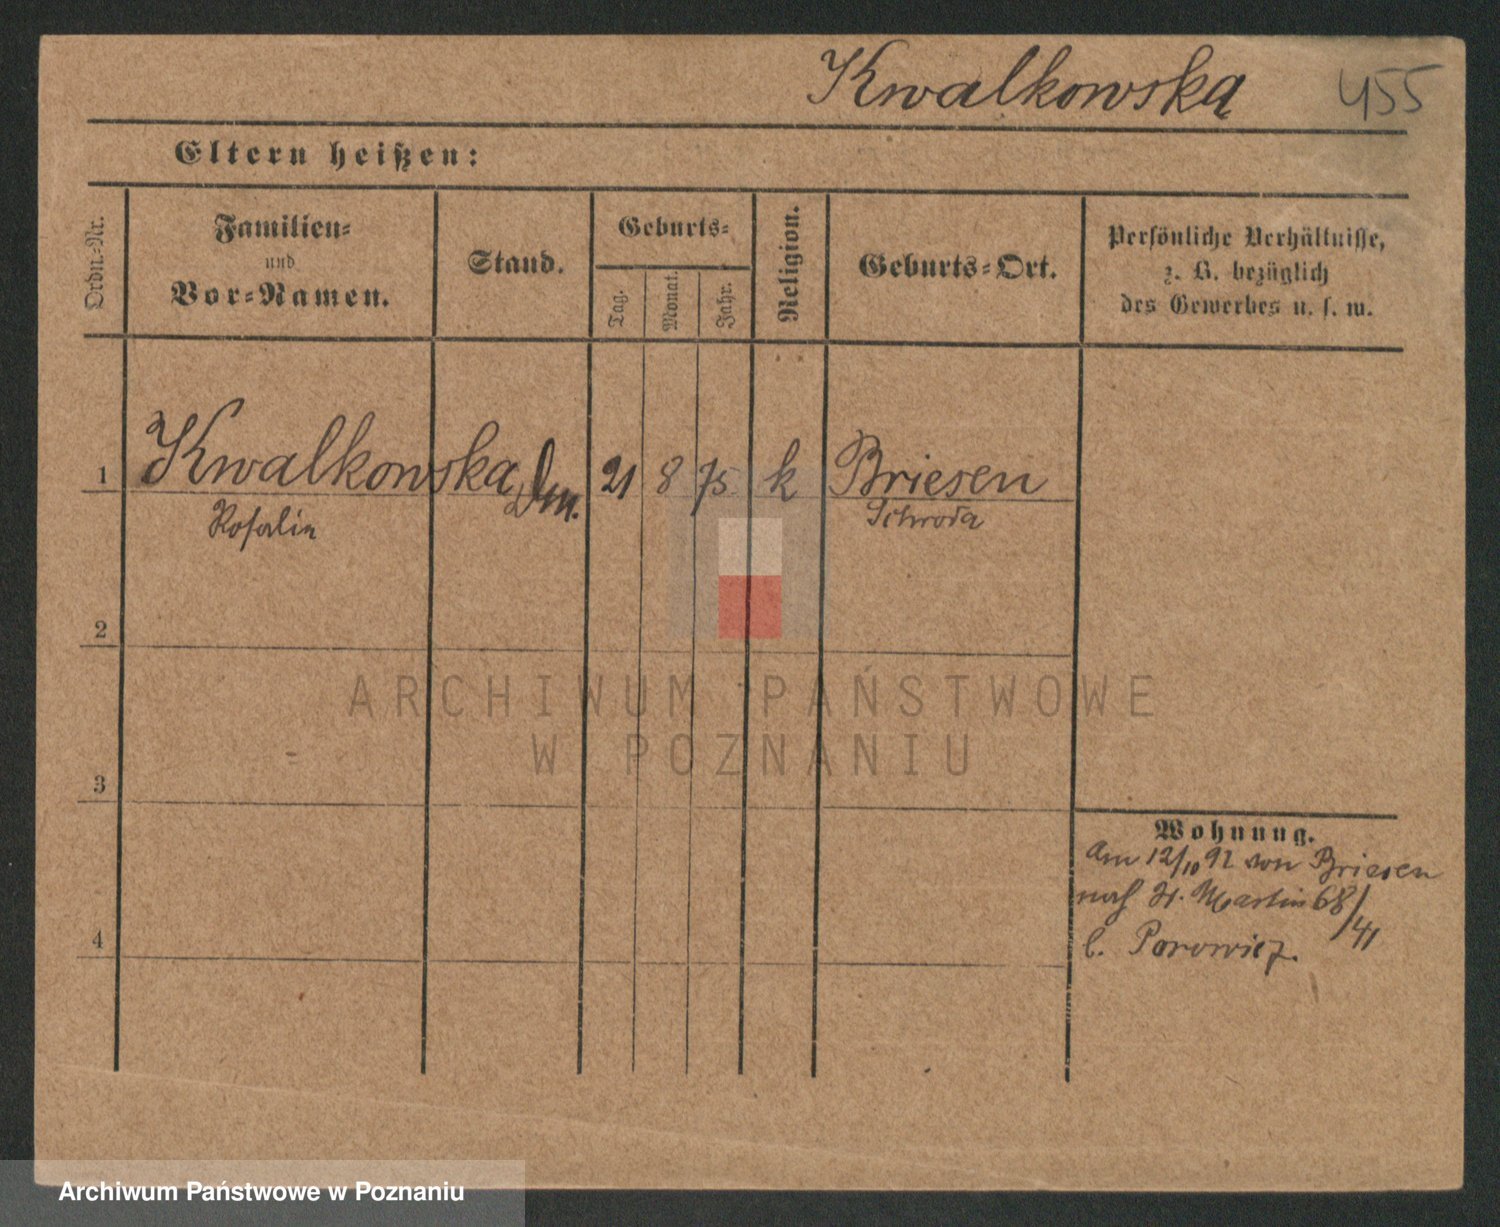 Kwalkowska 455
Eltern heißen:
Ordn.-Nr.
Familien-
und
Vor-Namen.
Stand.
Geburts-
Tag.
Monat.
Jahr.
Religion.
Geburts-Ort.
Persönliche Verhältnisse,
z. B. bezüglich
des Gewerbes u. s. w.
1 Kwalkowska 21 8 75 k Briesen
Rosalie Schroda
2
3
Wohnung.
Am 12/10 92 von Briesen
nach St. Martin 68/41
b.
4
ARCHIWUM PAŃSTWOWE
W POZNANIU
Archiwum Państwowe w Poznaniu